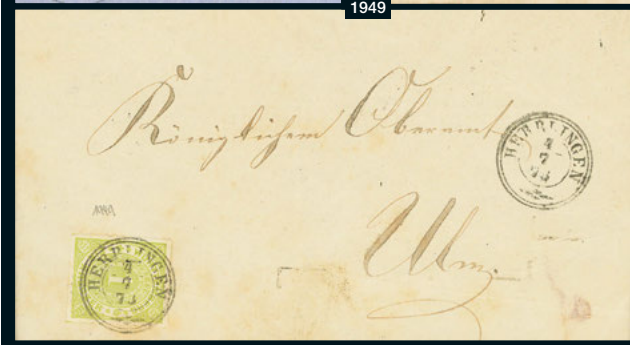 1949
Königlichem Oberamt
HERRLINGEN
4
7
73
1949
Ulm.
HERRLINGEN
4
7
73